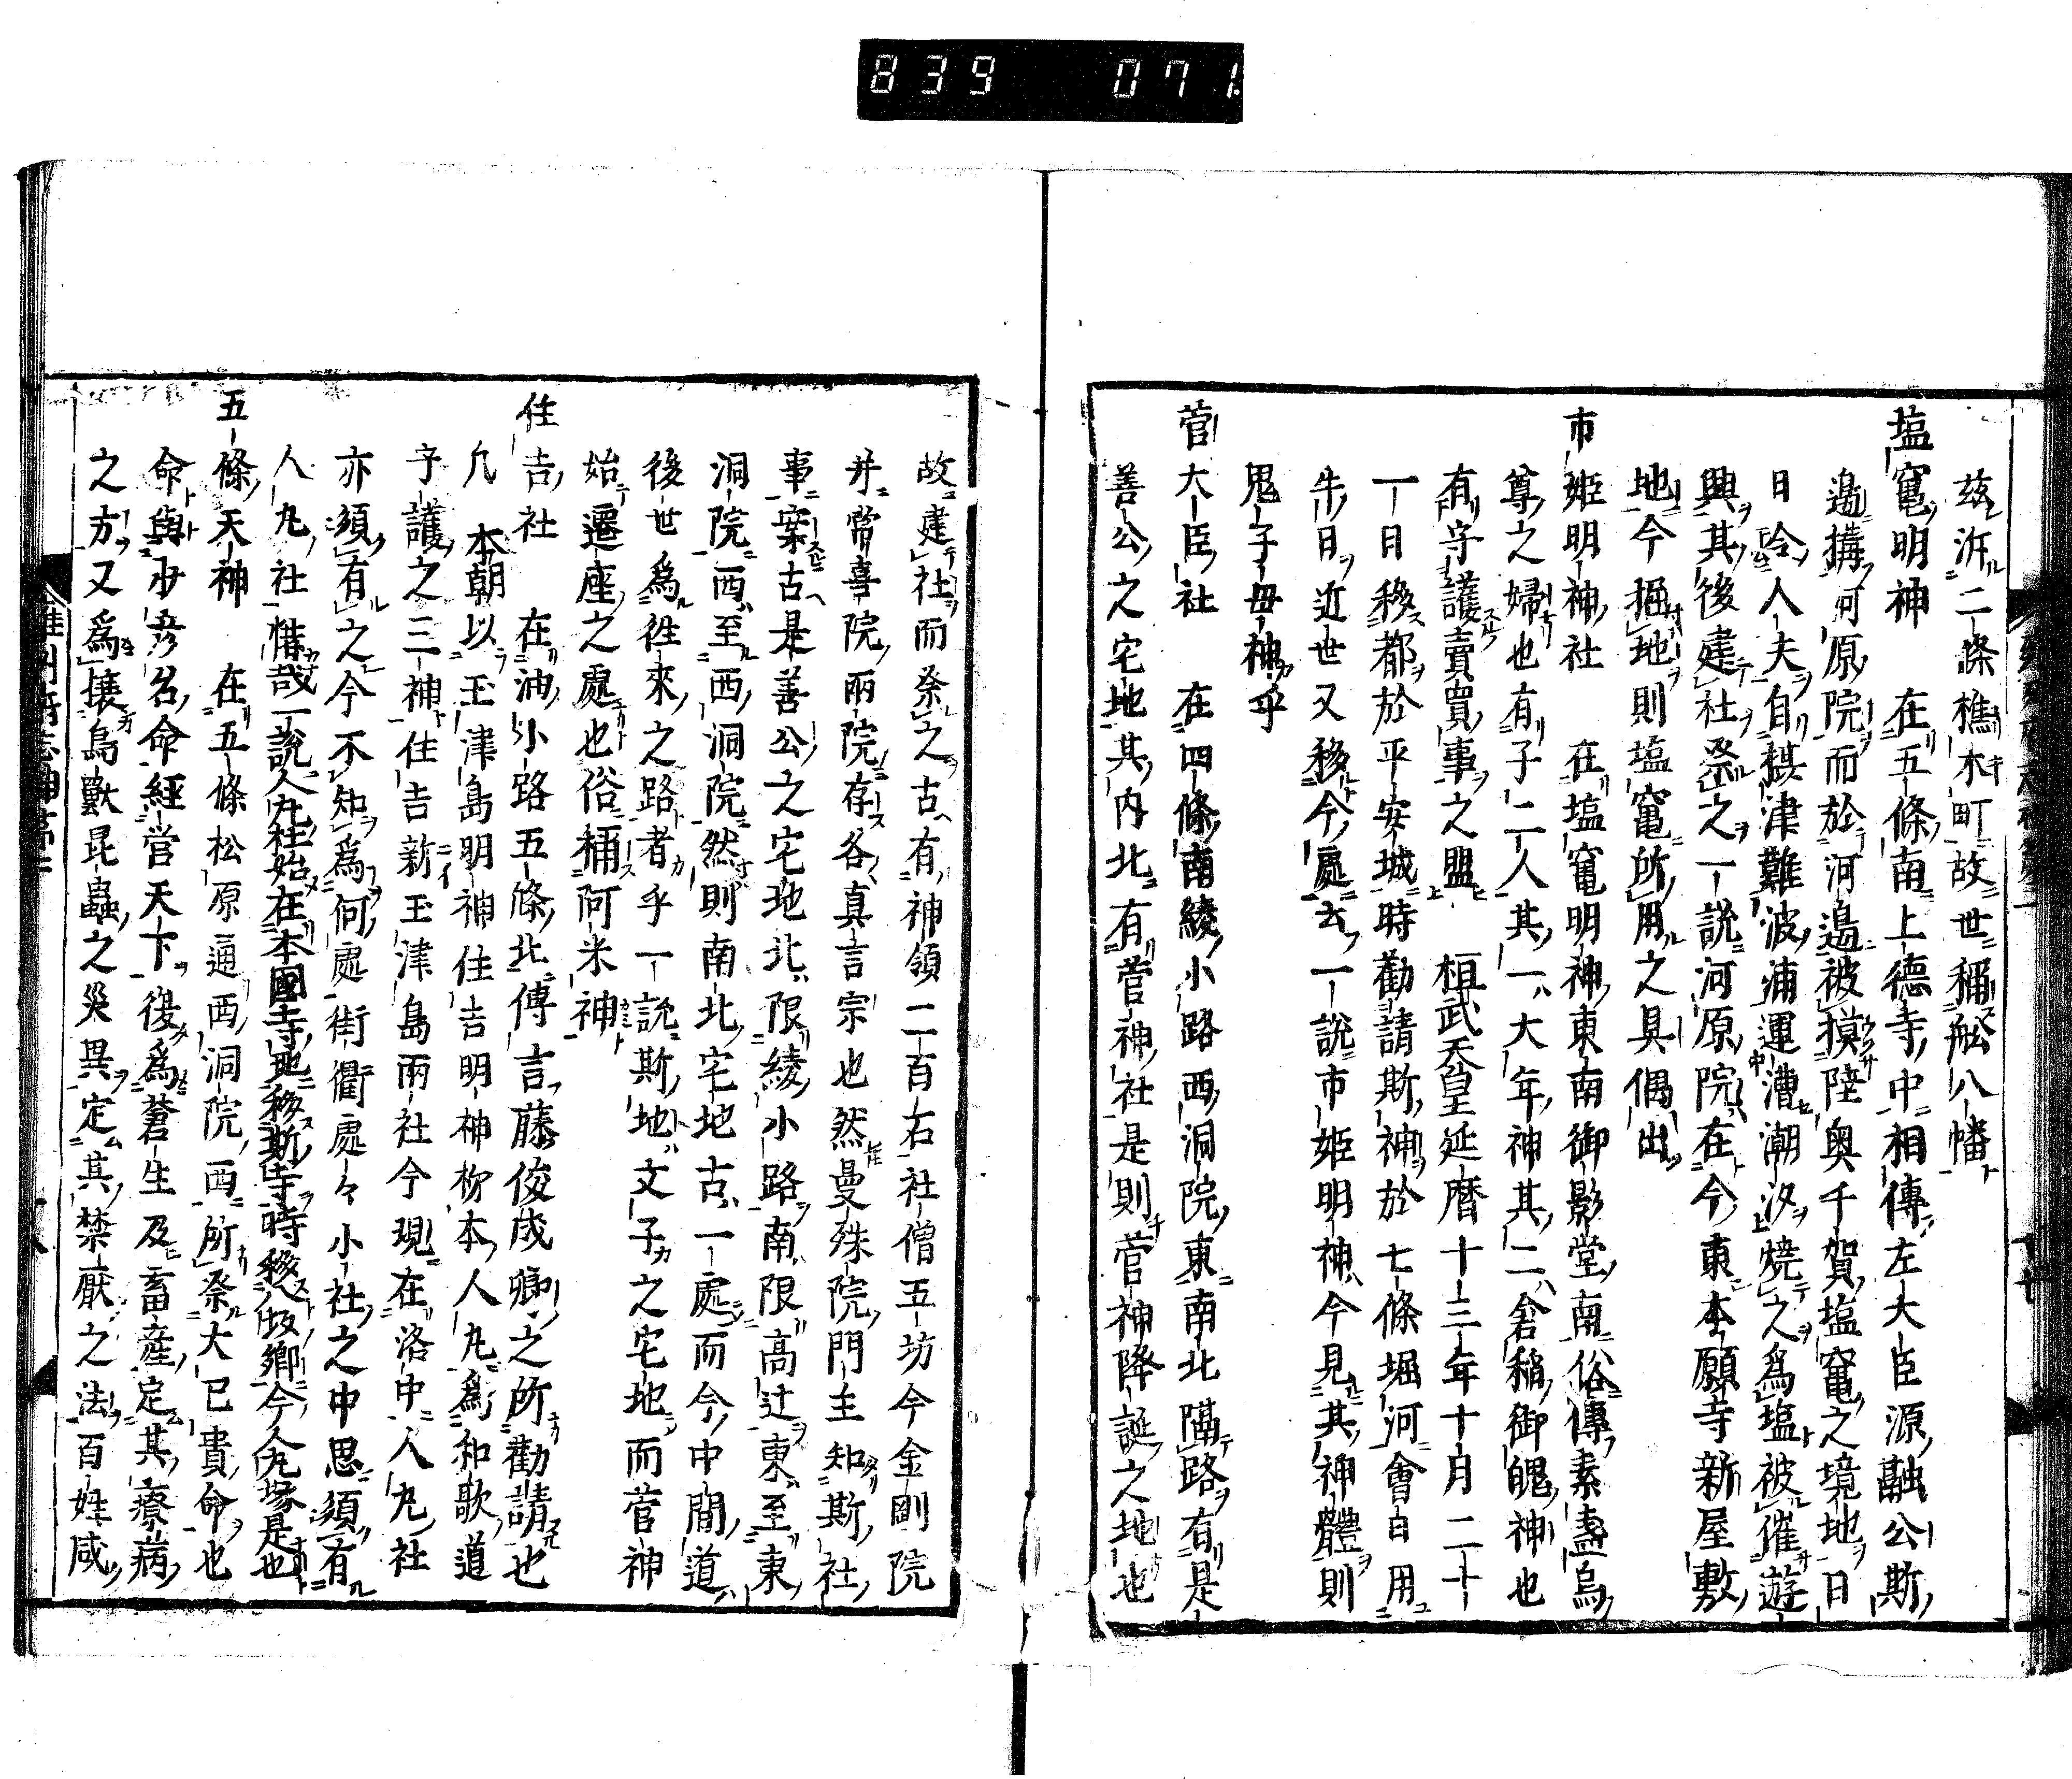 839 071
茲泝二條樵木町故世稱舩八幡
塩竃明神 在五條南上德寺中相傳左大臣源融公斯
邉搆河原院而於河邉被摸陸奥千賀塩竃之境地日
日令人夫自摂津難波浦運漕潮汐燒之爲塩被催遊
興其後建社祭之一說河原院在今東本願寺新屋敷
地今掘地則塩竃所用之具偶出
市姫明神社 在塩竃明神東南御影堂南俗傳素盞烏
尊之婦也有子二人其一大年神其二倉稲御魄神也
有守護賣買事之盟 桓武天皇延暦十三年十月二十
一日移都於平安城時勸請斯神於七條堀河會日用
牛日近世又移今處云一說市姫明神今見其神體則
鬼子母神乎
菅大臣社 在四條南綾小路西洞院東南北隔路有是
善公之宅地其内北有菅神社是則菅神降誕之地也
故建社而祭之古有神領二百石社僧五坊今金剛院
并常喜院兩院存各真言宗也然曼殊院門主知斯社
事案古是善公之宅地北限綾小路南限高辻東至東
洞院西至西洞院然則南北宅地古一處而今中間道
後世爲徃來之路者乎一說斯地文子之宅地而菅神
始遷座之處也俗稱阿米神
住吉社 在油小路五條北傳言藤俊成卿之所勸請也
凢 本朝以玉津島明神住吉明神柿本人丸爲和歌道
守護之三神住吉新玉津島兩社今現在洛中人丸社
亦須有之今不知爲何處街衢處々小社之中思須有
人丸社惜哉一說人丸社始在本國寺地移斯寺時移八坂郷今人丸塚是也
五條天神 在五條松原通西洞院西所祭大已貴命也
命與少彦名命經営天下復爲蒼生及畜産定其療病
之方又爲攘鳥獸昆蟲之災異定其禁厭之法百姓咸